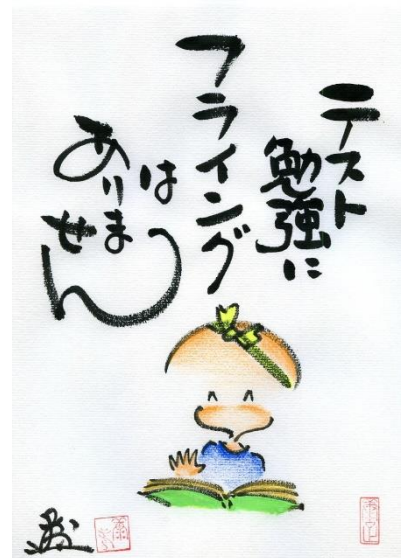 テスト
勉強に
フライング
は
ありま
せん